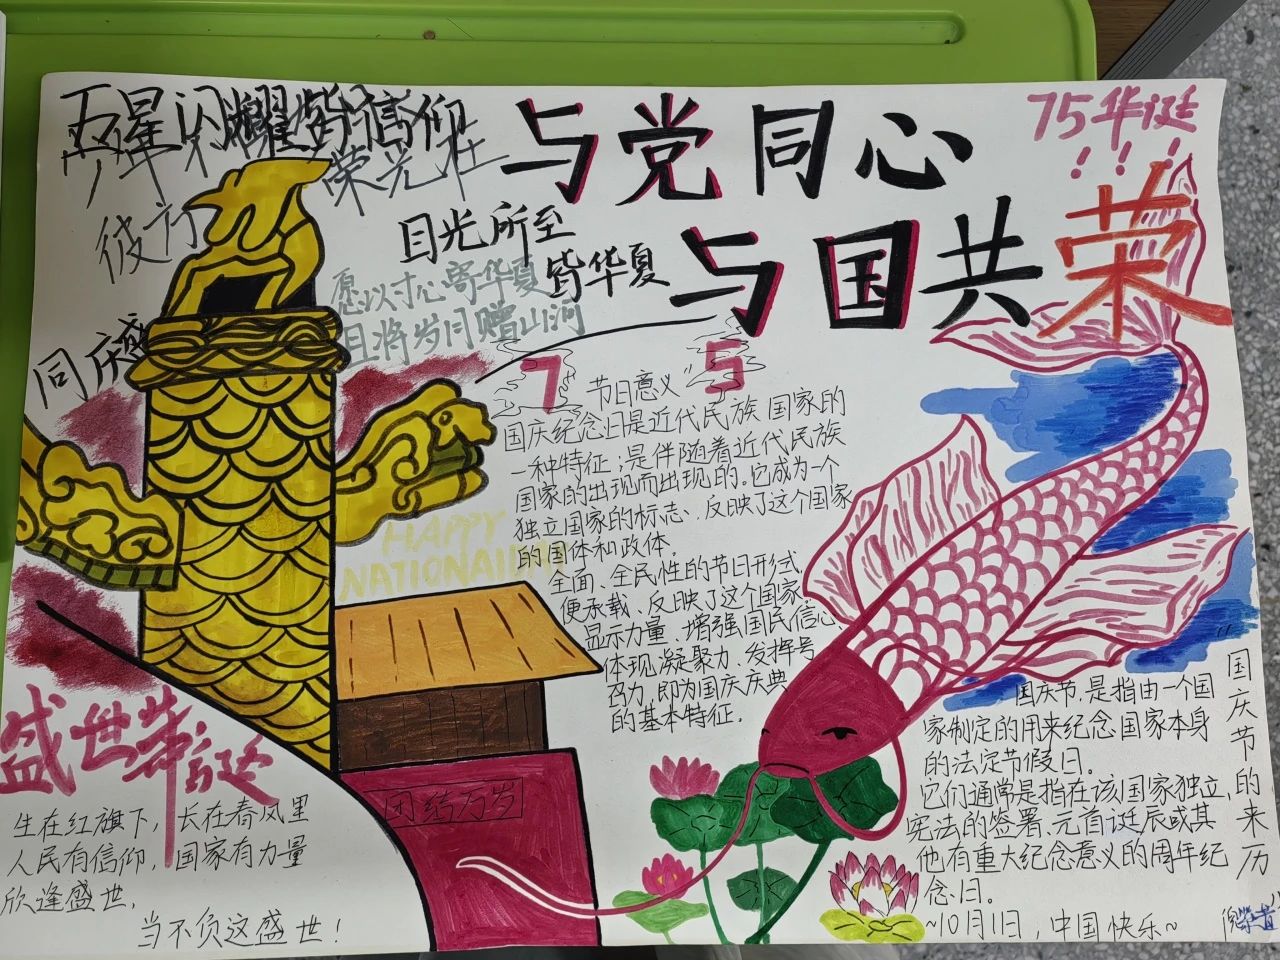 五星闪耀皆信仰
彼方
荣光在
与党同心
与国共荣
75华诞
!!!
目光所至
皆华夏
愿以寸心寄华夏
且将岁月赠山河
同庆盛
75
节日意义
国庆纪念日是近代民族国家的
一种特征；是伴随着近代民族
国家的出现而出现的。它成为一个
独立国家的标志、反映了这个国家
的国体和政体。
全面、全民性的节日形式,
便承载、反映了这个国家
显示力量、增强国民信心,
体现凝聚力、发挥号
召力,即为国庆庆典
的基本特征.
HAPPY
NATIONAL
团结万岁
盛世华诞
生在红旗下, 长在春风里
人民有信仰, 国家有力量
欣逢盛世,
当不负这盛世!
国庆节的来历
国庆节,是指由一个国
家制定的用来纪念国家本身
的法定节假日。
它们通常是指在该国家独立,
宪法的签署、元首诞辰或其
他有重大纪念意义的周年纪
念日。
~10月1日,中国快乐~